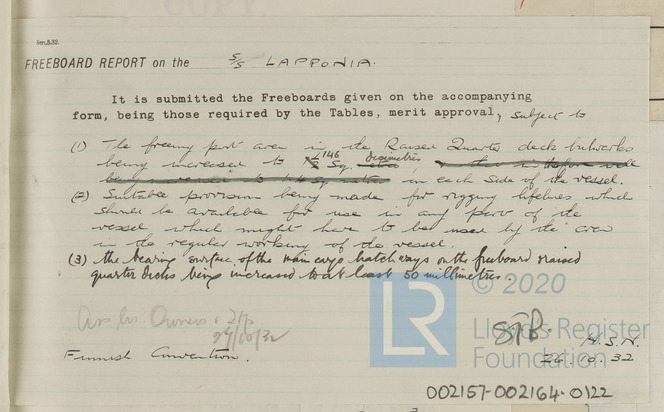 5m,5.32.
FREEBOARD REPORT on the S/S LAPPONIA.
It is submitted the Freeboards given on the accompanying
form, being those required by the Tables, merit approval, subject to
(1) The freeing port area in the Raised Quarter deck bulwarks
being increased to 146 Sq. decimetres,
in each side of the vessel.
(2) Suitable provision being made for rigging lifelines which
should be available for use in any part of the
vessel which might have to be used by the crew
in the regular working of the vessel.
(3) the bearing surface of the main cargo hatchways on the freeboard & raised
quarter decks being increased to at least 50 millimetres.
© 2020
LR
Lloyd's Register
Foundation
Owners
24/10/32
Finnish Convention.
H.S.N.
26.10.32
002157-002164-0122